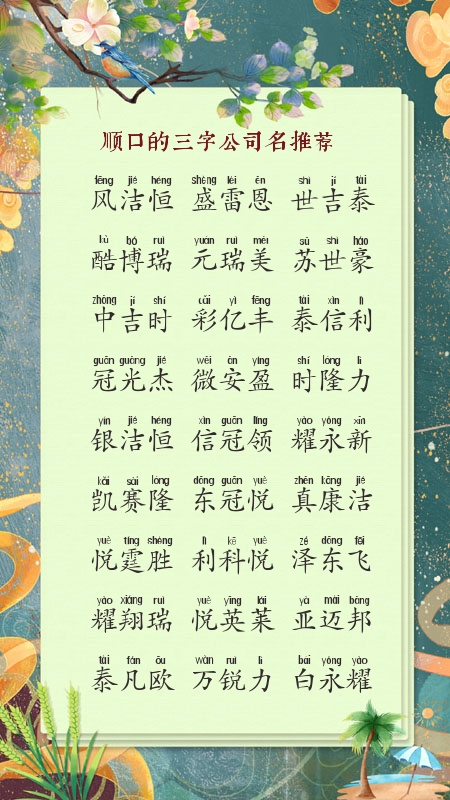 顺口的三字公司名推荐
fēng jié héng shèng léi ēn shì jí tài
风洁恒 盛雷恩 世吉泰
kù bó ruì yuán ruì měi sū shì háo
酷博瑞 元瑞美 苏世豪
zhōng jí shí cǎi yì fēng tài xìn lì
中吉时 彩亿丰 泰信利
guān guāng jié wēi ān yíng shí lóng lì
冠光杰 微安盈 时隆力
yín jié héng xìn guān lǐng yào yǒng xīn
银洁恒 信冠领 耀永新
kǎi sài lóng dōng guān yuè zhēn kāng jié
凯赛隆 东冠悦 真康洁
yuè tíng shèng lì kē yuè zé dōng fēi
悦霆胜 利科悦 泽东飞
yào xiáng ruì yuè yīng lái yà mài bāng
耀翔瑞 悦英莱 亚迈邦
tài fán ōu wàn ruì lì bái yǒng yào
泰凡欧 万锐力 白永耀